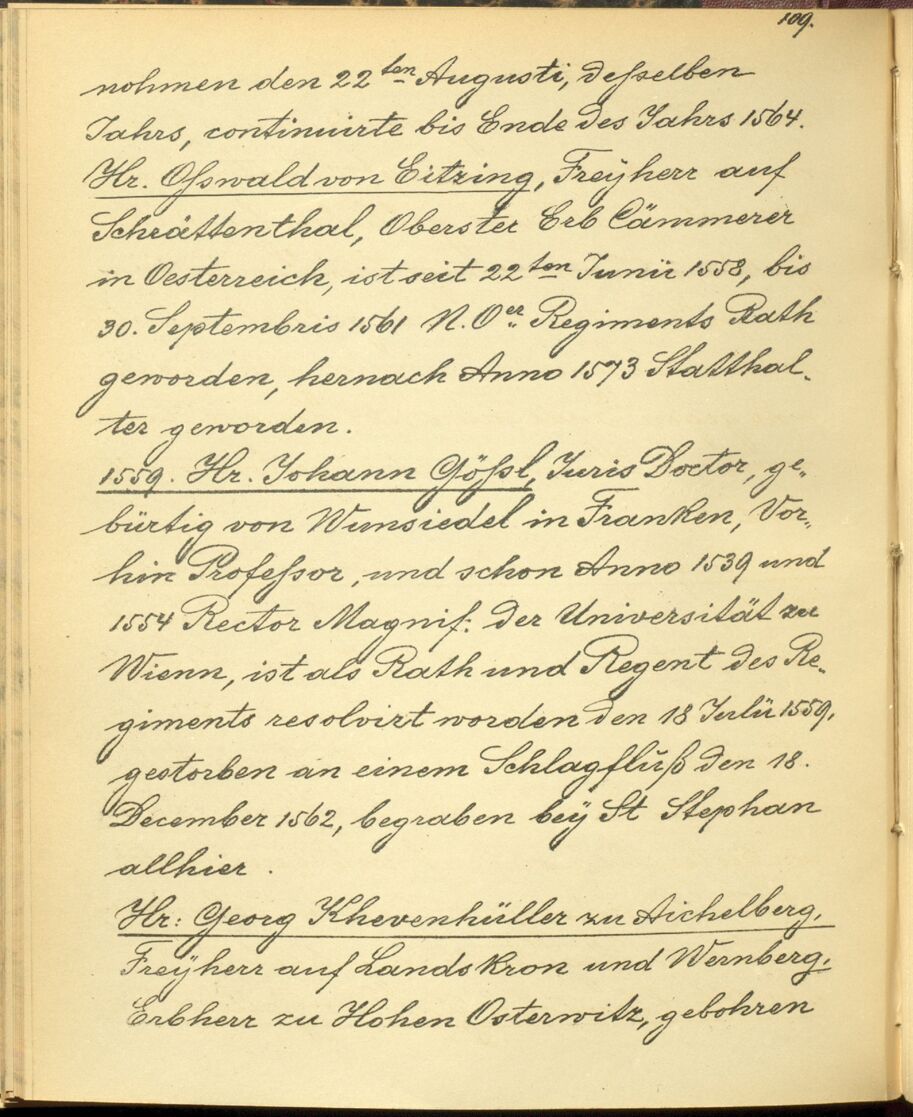 109.
nohmen den 22ten Augusti, deſselben
Jahrs, continuirte bis Ende des Jahrs 1564.
Hr. Oſswald von Eitzing, Freÿherr auf
Schrättenthal, Oberster Erb Cämmerer
in Oesterreich, ist seit 22ten Junii 1558, bis
30. Septembris 1561 N. Oer Regiments Rath
geworden, hernach Anno 1573 Statthal-
ter geworden.
1559. Hr. Johann Göſsl, Juris Doctor, ge-
bürtig von Wunsiedel in Franken, Vor-
hin Profeſsor, und schon Anno 1539 und
1554 Rector Magnif: der Universität zu
Wienn, ist als Rath und Regent des Re-
giments resolvirt worden den 18 Julii 1559,
gestorben an einem Schlagfluß den 18.
December 1562, begraben beÿ St Stephan
allhier.
Hr: Georg Khevenhüller zu Aichelberg,
Freÿherr auf Landskron und Wernberg,
Erbherr zu Hohen Osterwitz, gebohren